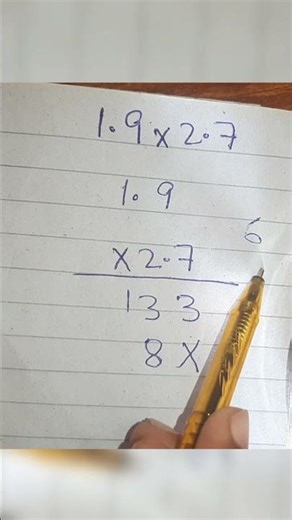 1.9 x 2.7
1.9
6
x 2.7
133
8 x